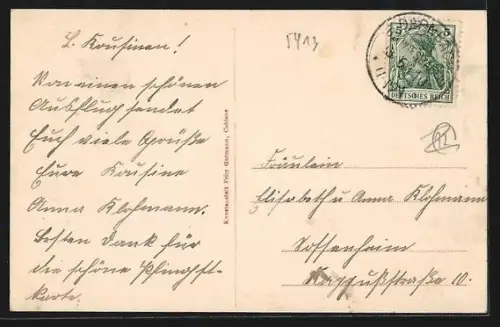 L. Kousinen!
Von einem schönen
Ausflug sendet
Euch viele Grüße
Eure Kousine
Anna Klohmann.
Besten Dank für
die schöne Pfingst-
karte.
Kunstanstalt Fritz Gutmann, Coblenz
5413
5 5
DEUTSCHES REICH
Fräulein
Elisabeth u Anna Klohmann
Sossenheim
10.